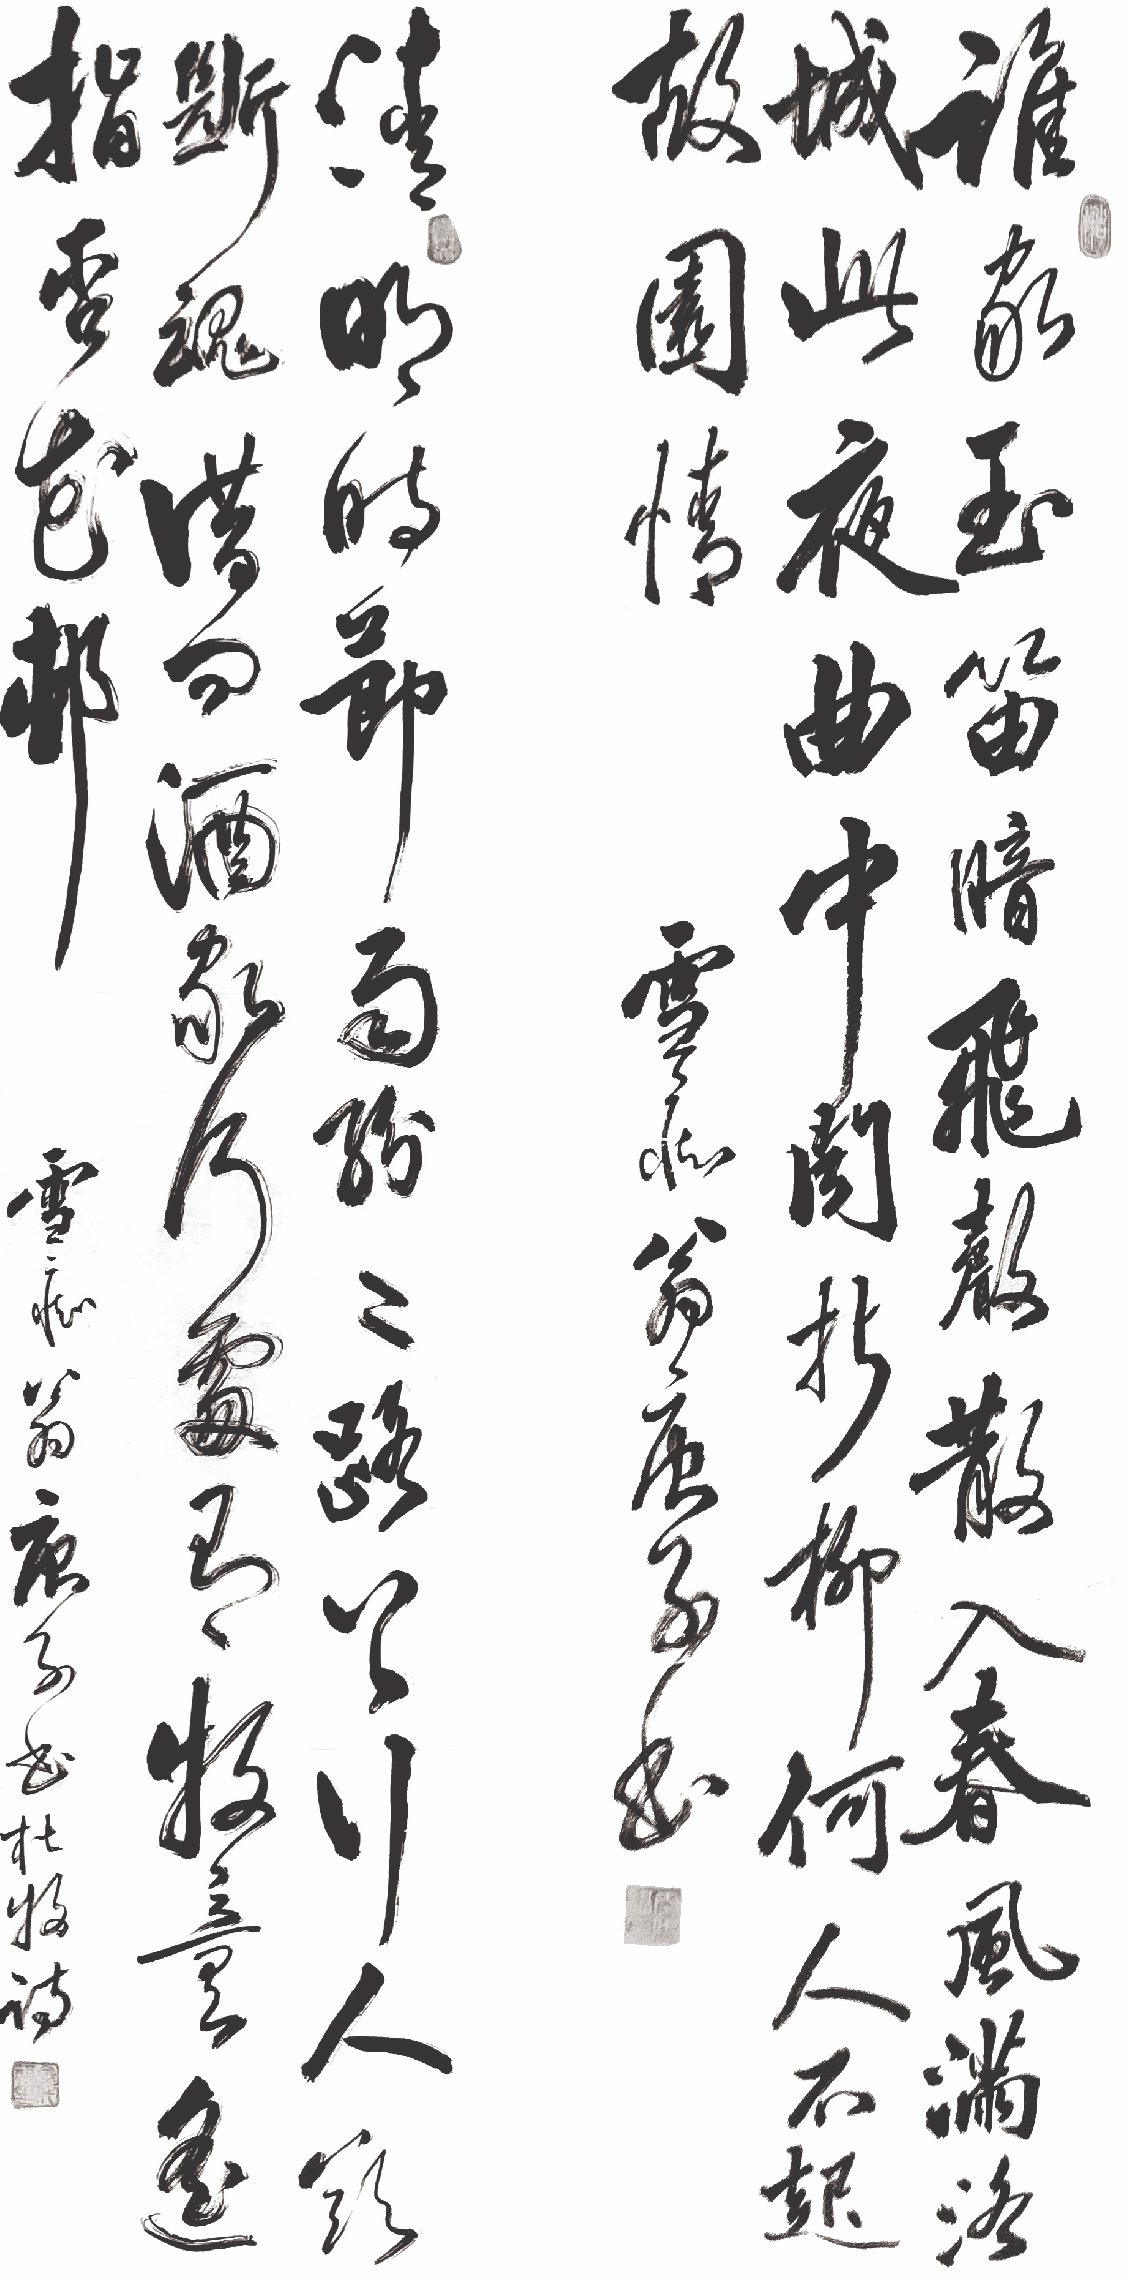 誰家玉笛暗飛聲散入春風滿洛
城此夜曲中聞折柳何人不起
故園情
雪痴翁庚子書
清明時節雨紛々路上行人欲
斷魂借問酒家何處有牧童遙
指杏花邨
雪痴翁庚子書杜牧詩